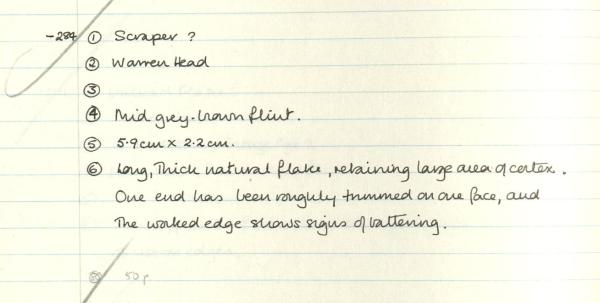 -284 ① Scraper ?
② Warren Head
③
④ Mid grey-brown flint.
⑤ 5.9cm × 2.2cm.
⑥ Long, Thick natural flake, retaining large area of cortex.
One end has been roughly trimmed on one face, and
The worked edge shows signs of battering.
50p